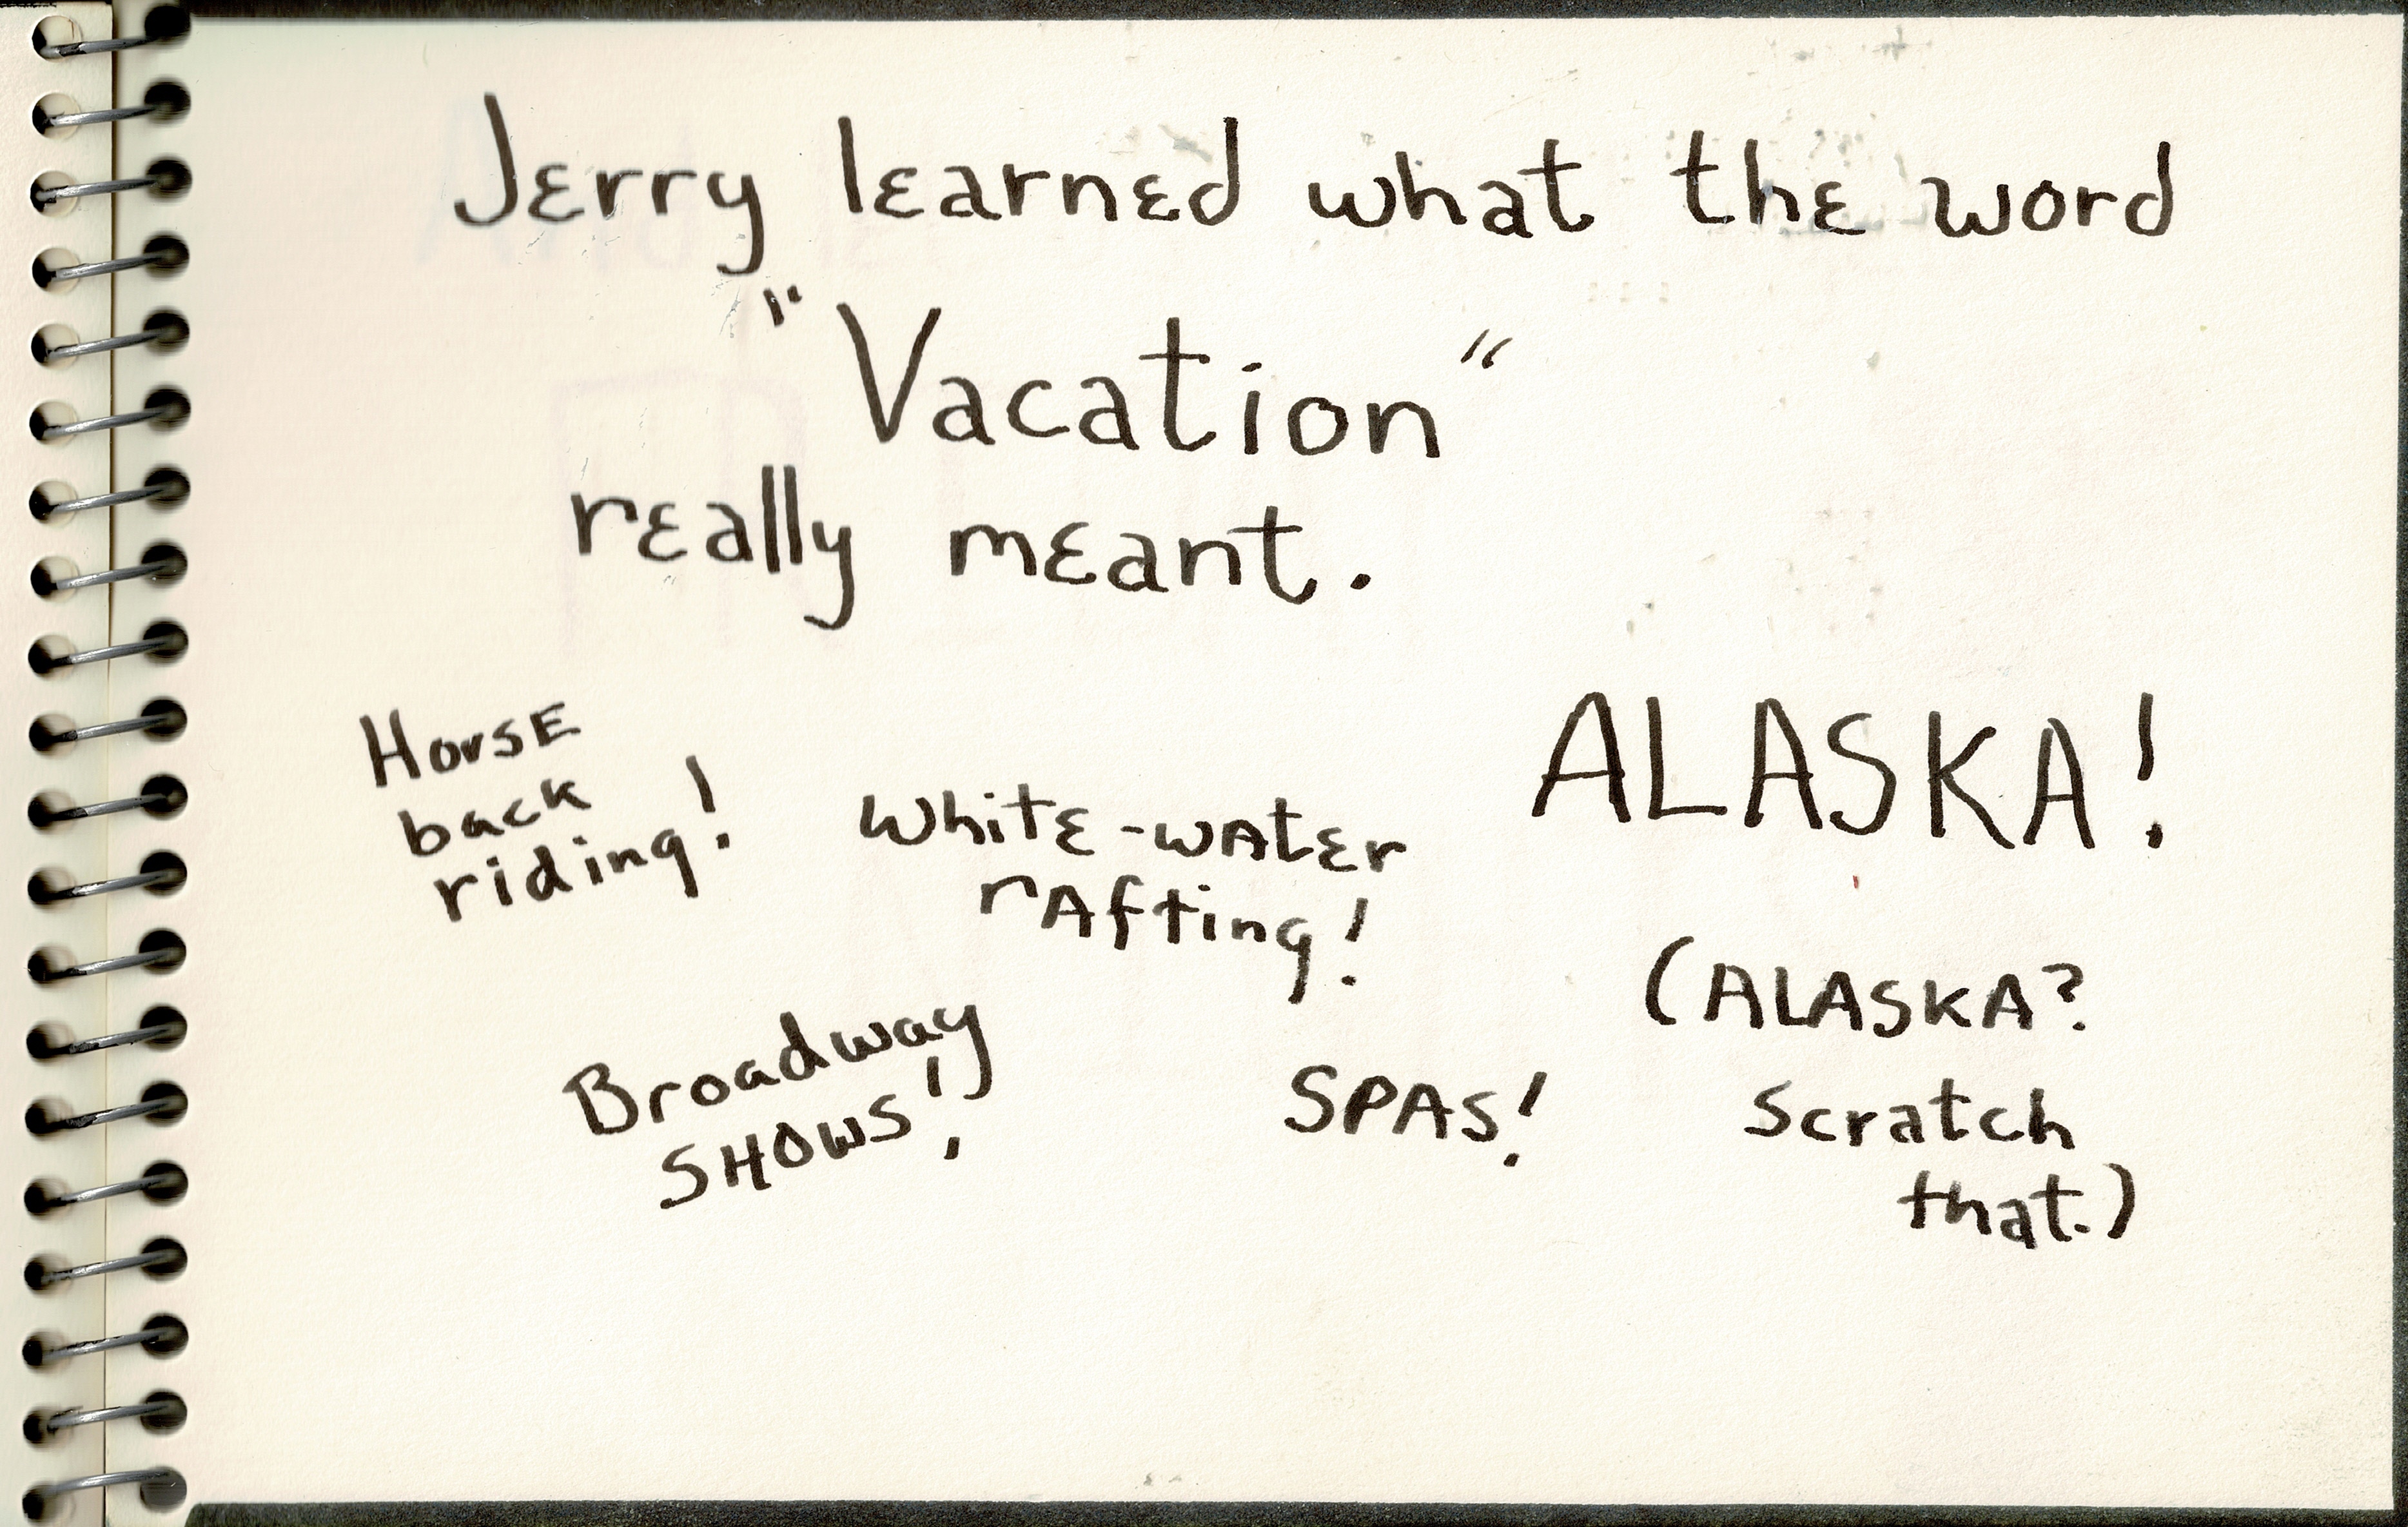 Jerry learned what the word
"Vacation"
really meant.
Horse
back
riding!
White-water
rafting!
ALASKA!
(ALASKA?
Scratch
that.)
Broadway
SHOWS!
SPAS!